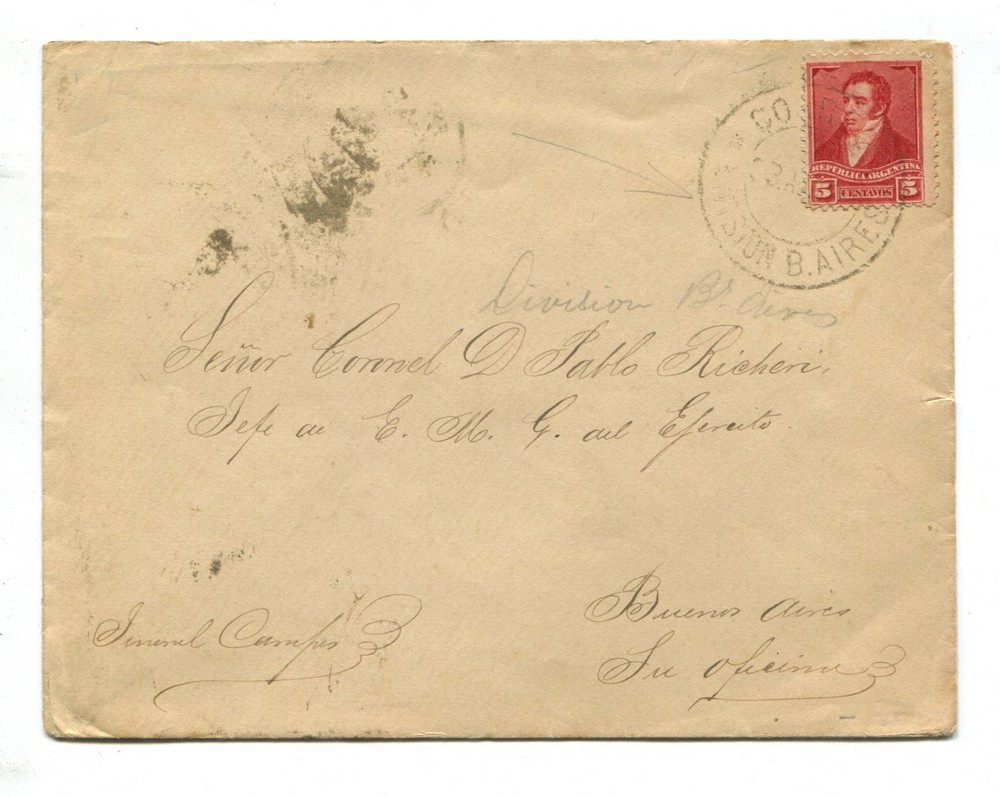 REPUBLICA ARGENTINA
5 CENTAVOS 5
B. AIRES
Division Bs. Aires
Señor Coronel D Pablo Richeri.
Jefe de E. M. G. del Ejército.
Jeneral Campos
Buenos Aires
Su oficina